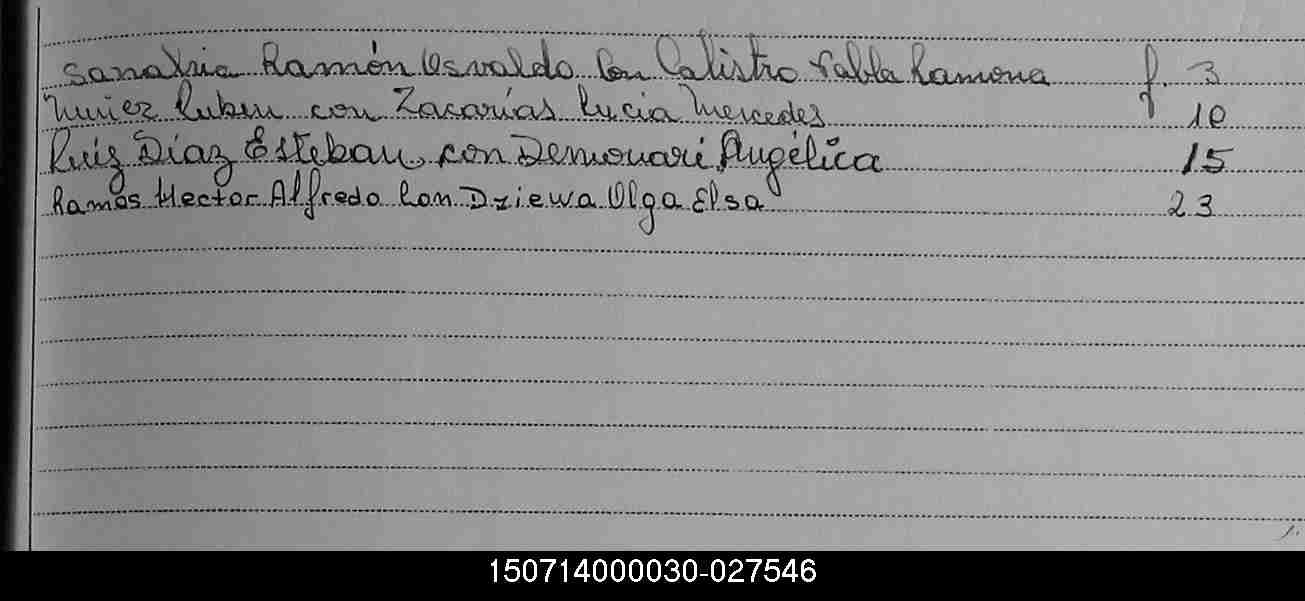 Sanabria Ramón Osvaldo Con Calistro Pabla Ramona f. 3
Nuñez Ruben con Zacarías Lucia Mercedes 10
Ruiz Díaz Esteban, con Demonari Angélica 15
Ramos Hector Alfredo Con Dziewa Olga Elsa 23
150714000030-027546